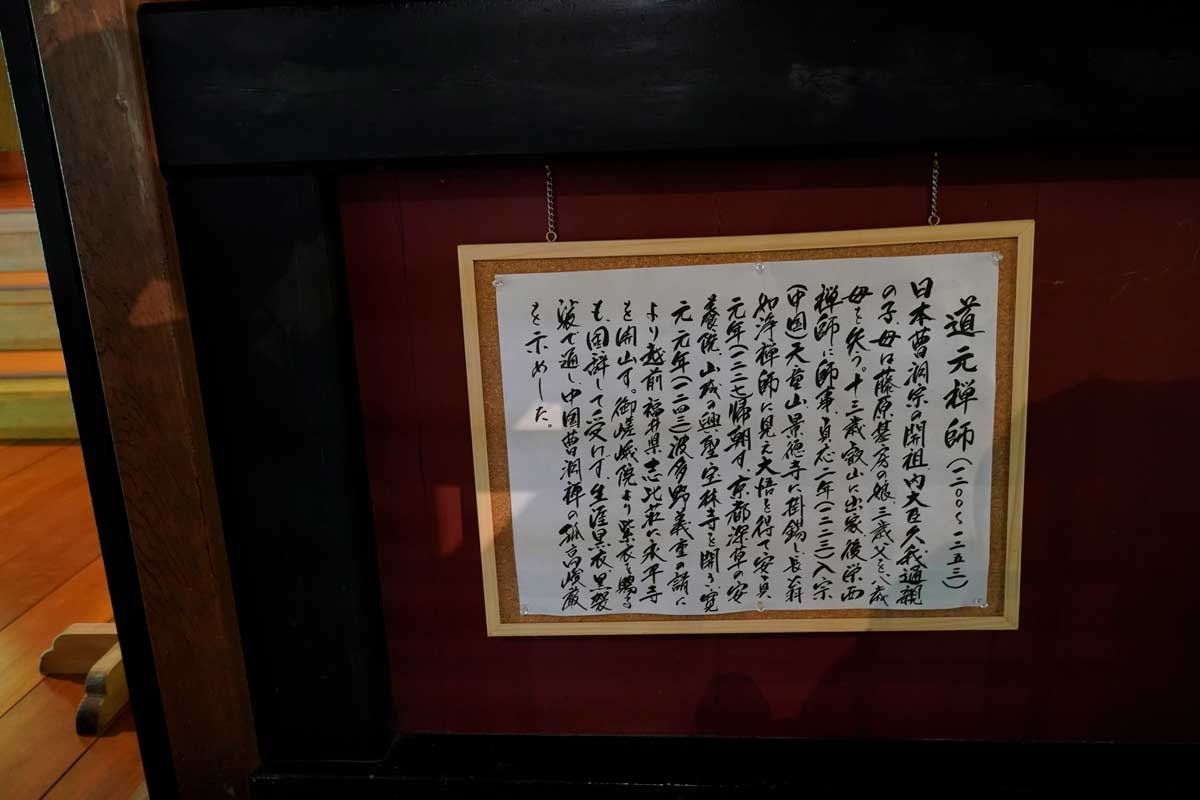 道元禅師(一二〇〇〜一二五三)
日本曹洞宗の開祖内大臣久我通親
の子、母は藤原基房の娘、三歳父を八歳
母を失う。十三歳叡山に出家、後栄西
禅師に師事、貞応二年(一二二三)入宗
(中国)天童山景徳寺に掛錫し長翁
如浄禅師に見え大悟を得て安貞
元年(一二二七)帰朝す、京都深草の安
養院、山城の興聖宝林寺を開う寛
元元年(一二四三)波多野義重の請に
より越前福井県志比荘に永平寺
を開山す。御嵯峨院より紫衣を賜る
も、固辞して受けず、生涯黒衣、黒袈
裟で通し、中国曹洞禅の孤高峻厳
を示めした。